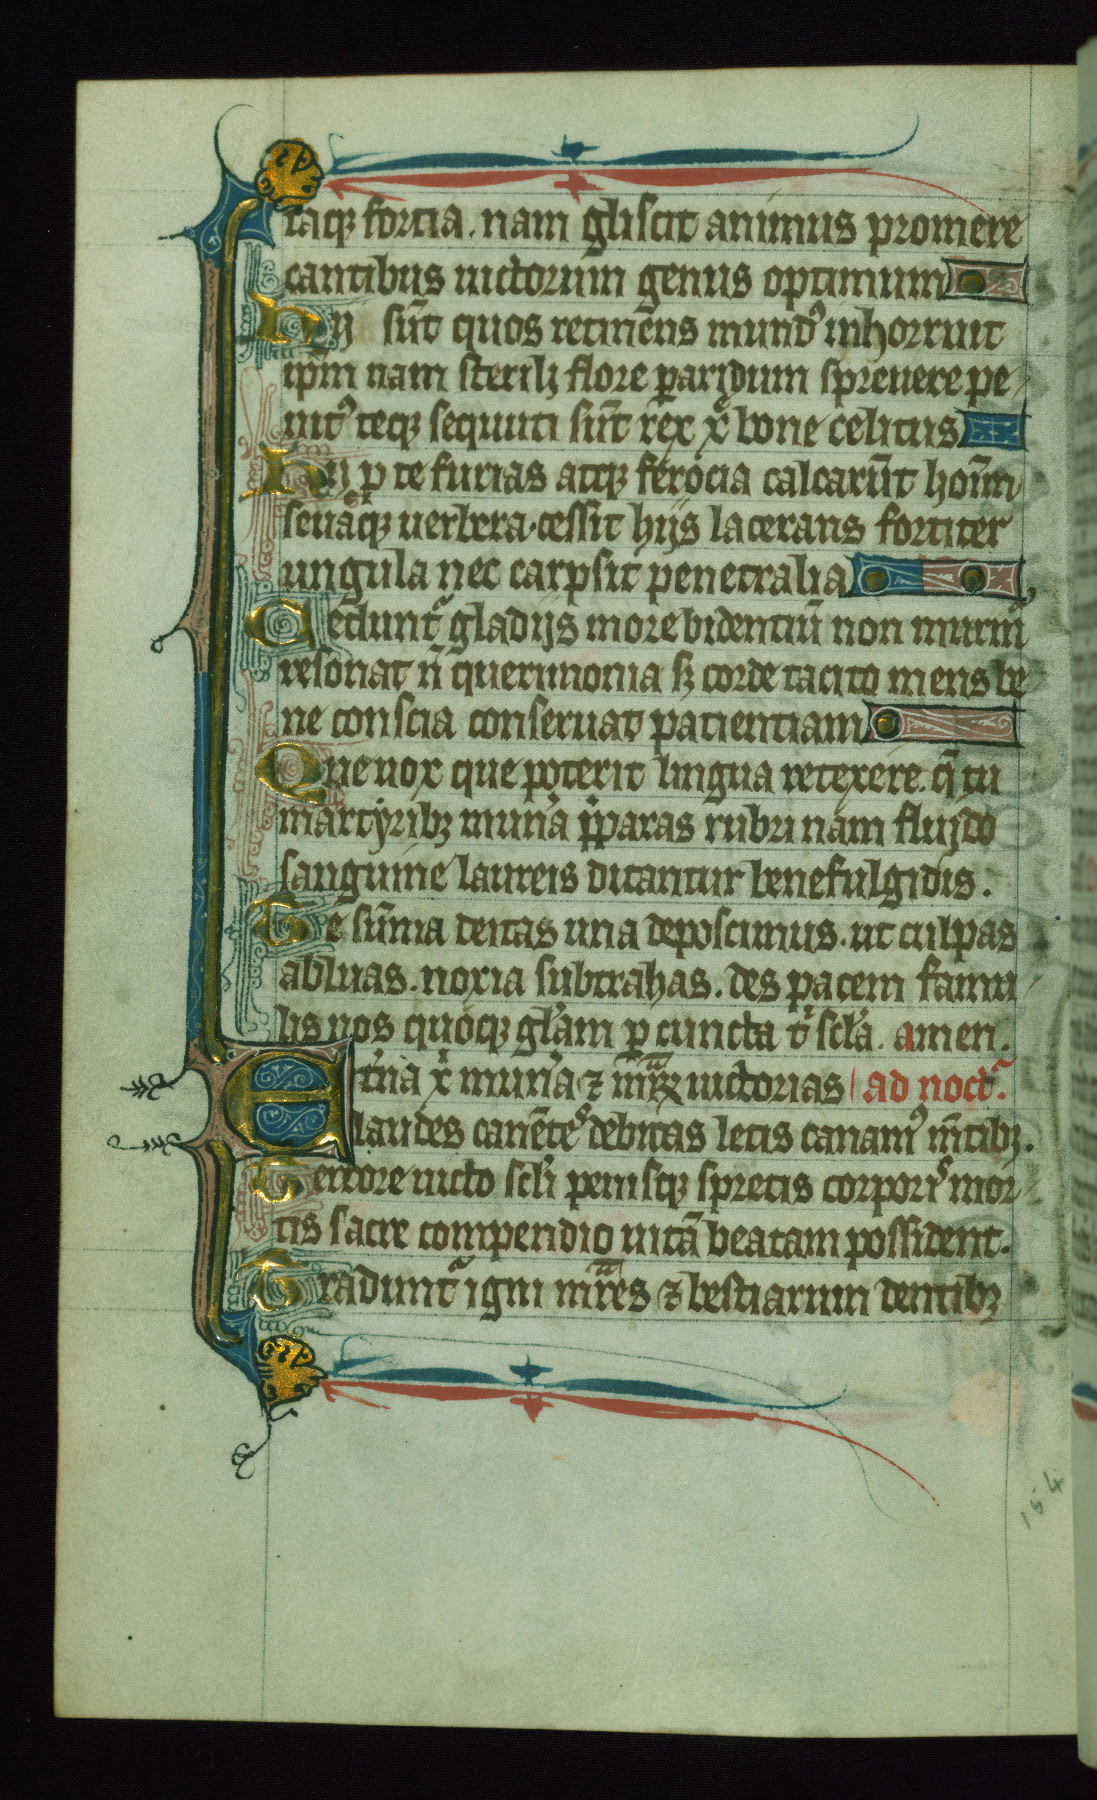 taqꝫ fortia . nam gliscit animus promere
cantibus uictorum genus optimum
Hij sūt quos retinēns mundꝰ inhorruit
ip̄m nam sterilꝫ flore ꝑaridum spreuere pe
nitꝰ teqꝫ sequuti sūt rex xp̄e bone celitus
Hij ꝑ te furias atqꝫ ferocia calcarūt hoīm
seuaqꝫ uerbera cessit hijs lacerans fortiter
ungula nec carpsit penetralia
Cedunt᷑ gladijs more bidentiū non murm᷑
resonat n̄ querimonia sꝫ corde tacito mens be
ne conscia conseruat patientiam
Que uox que poterit lingua retexere. q̄ tu
martyribꝫ munͣa p̄paras rubri nam fluido
sanguine laureis ditantur bene fulgidis .
Te sūma deitas una deposcimus . ut culpas
abluas . noxia subtrahas . des pacem famu
lis nos quoqꝫ gl̄am ꝑ cuncta t᷑ scl̄a . amen .
Et̄na xp̄i munͣa ⁊ mr̄ꝝ uictorias ad noct᷑.
laudes canētes debitas letis canamꝰ mētibꝫ .
Terrore uicto scl̄i penisqꝫ spretis corporis mor
tis sacre compendio uitā beatam possident .
Tradunt᷑ igni mr̄es ⁊ bestiarum dentibꝫ
154